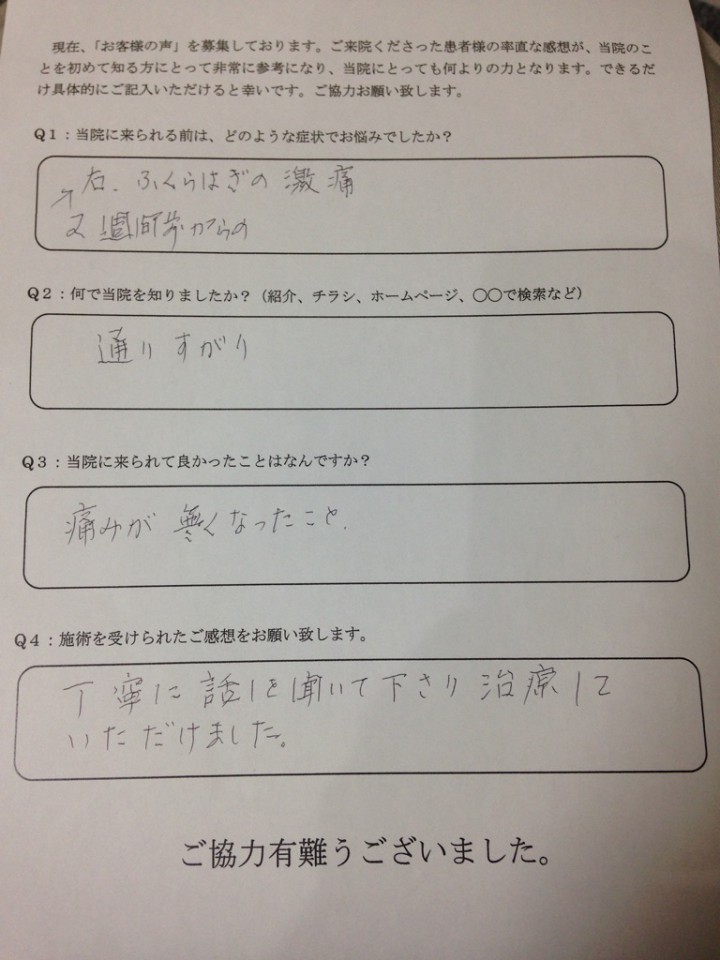 現在、「お客様の声」を募集しております。ご来院くださった患者様の率直な感想が、当院のこ
とを初めて知る方にとって非常に参考になり、当院にとっても何よりの力となります。できるだ
け具体的にご記入いただけると幸いです。ご協力お願い致します。
Q1：当院に来られる前は、どのような症状でお悩みでしたか？
右．ふくらはぎの激痛
↗
2週間前からの
Q2：何で当院を知りましたか？（紹介、チラシ、ホームページ、〇〇で検索など）
通りすがり
Q3：当院に来られて良かったことはなんですか？
痛みが無くなったこと．
Q4：施術を受けられたご感想をお願い致します。
丁寧に話しを聞いて下さり治療して
いただけました。
ご協力有難うございました。